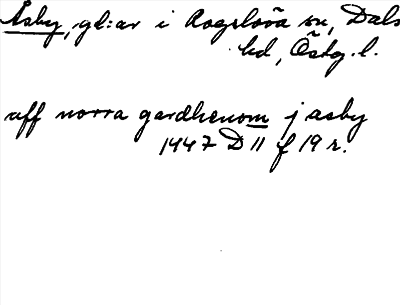 Åsby, gd:ar i Rogslösa sn, Dals
hd, Östg. l.
aff norra gardhenom j asby
1447 D 11 f 19 r.